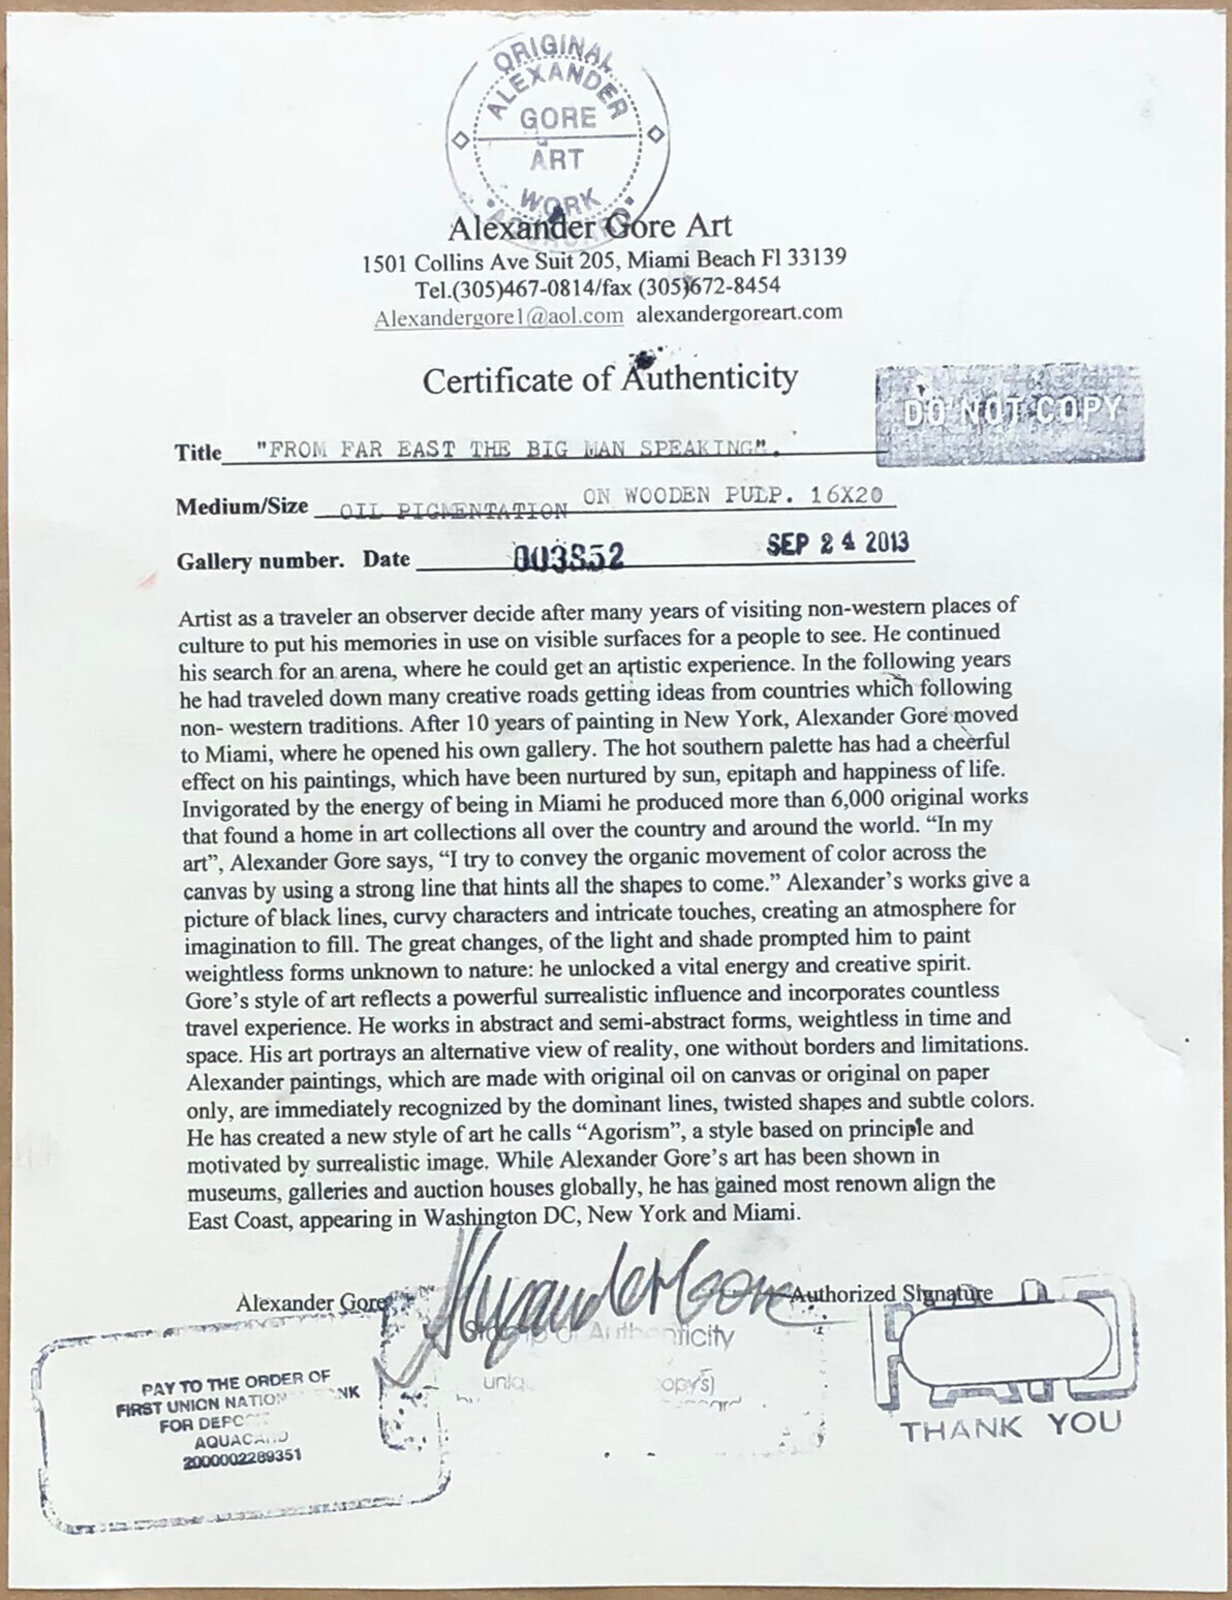 ORIGINAL
ALEXANDER
GORE
ART
WORK
Alexander Gore Art
1501 Collins Ave Suit 205, Miami Beach Fl 33139
Tel.(305)467-0814/fax (305)672-8454
Alexandergore1@aol.com alexandergoreart.com
Certificate of Authenticity
DO NOT COPY
Title "FROM FAR EAST THE BIG MAN SPEAKING".
Medium/Size OIL PIGMENTATION ON WOODEN PULP. 16X20
Gallery number. Date 003852 SEP 24 2013
Artist as a traveler an observer decide after many years of visiting non-western places of
culture to put his memories in use on visible surfaces for a people to see. He continued
his search for an arena, where he could get an artistic experience. In the following years
he had traveled down many creative roads getting ideas from countries which following
non- western traditions. After 10 years of painting in New York, Alexander Gore moved
to Miami, where he opened his own gallery. The hot southern palette has had a cheerful
effect on his paintings, which have been nurtured by sun, epitaph and happiness of life.
Invigorated by the energy of being in Miami he produced more than 6,000 original works
that found a home in art collections all over the country and around the world. “In my
art”, Alexander Gore says, “I try to convey the organic movement of color across the
canvas by using a strong line that hints all the shapes to come.” Alexander’s works give a
picture of black lines, curvy characters and intricate touches, creating an atmosphere for
imagination to fill. The great changes, of the light and shade prompted him to paint
weightless forms unknown to nature: he unlocked a vital energy and creative spirit.
Gore’s style of art reflects a powerful surrealistic influence and incorporates countless
travel experience. He works in abstract and semi-abstract forms, weightless in time and
space. His art portrays an alternative view of reality, one without borders and limitations.
Alexander paintings, which are made with original oil on canvas or original on paper
only, are immediately recognized by the dominant lines, twisted shapes and subtle colors.
He has created a new style of art he calls “Agorism”, a style based on principle and
motivated by surrealistic image. While Alexander Gore’s art has been shown in
museums, galleries and auction houses globally, he has gained most renown align the
East Coast, appearing in Washington DC, New York and Miami.
Alexander Gore Alexander Gore Authorized Signature
Stamp of Authenticity
PAY TO THE ORDER OF
FIRST UNION
FOR
2000002289351
THANK YOU